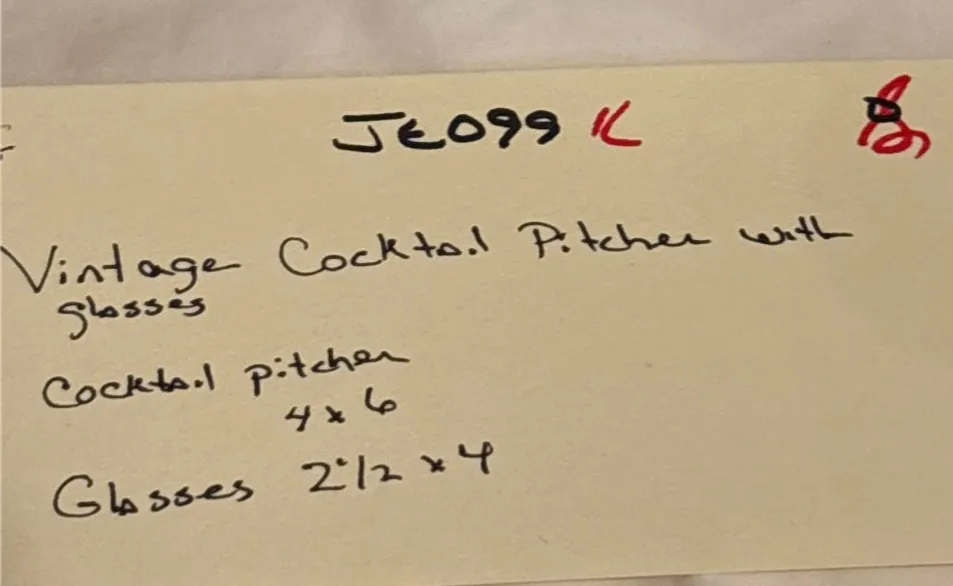 JE099 K
Vintage Cocktail Pitcher with
glasses
Cocktail pitcher
4 x 6
Glasses 2 1/2 x 4